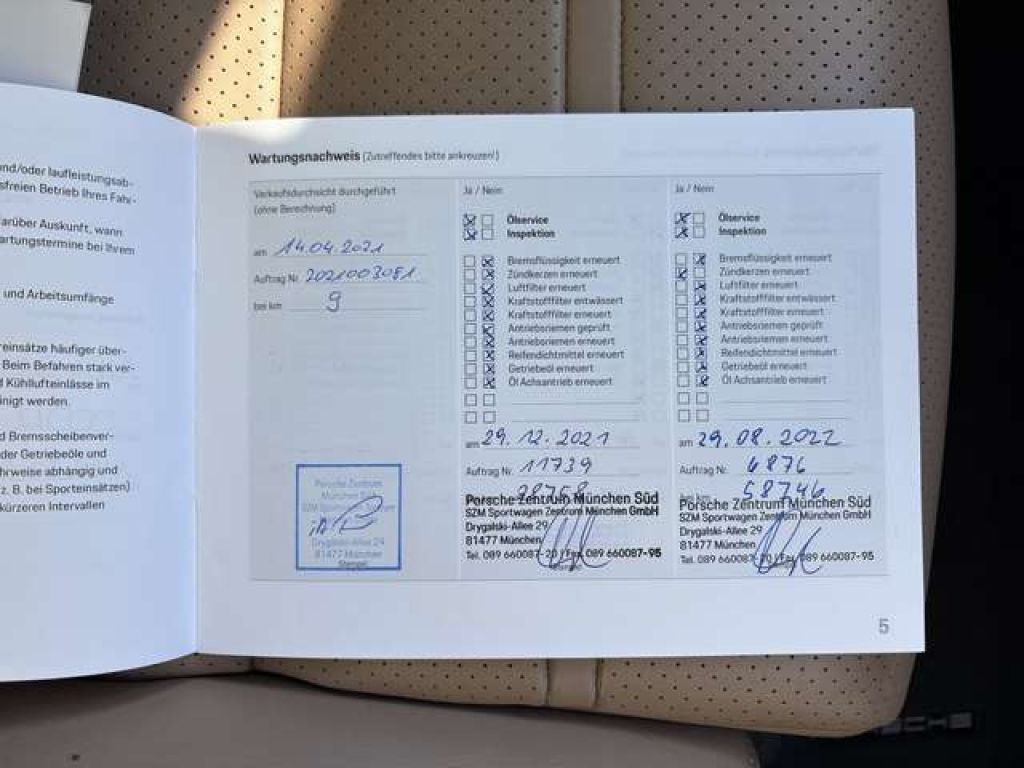 und/oder laufleistungsab-
sfreien Betrieb Ihres Fahr-
darüber Auskunft, wann
artungstermine bei Ihrem
und Arbeitsumfänge
reinsätze häufiger über-
Beim Befahren stark ver-
d Kühllufteinlässe im
inigt werden.
d Bremsscheibenver-
der Getriebeöle und
hrweise abhängig und
z. B. bei Sporteinsätzen)
kürzeren Intervallen
Wartungsnachweis (Zutreffendes bitte ankreuzen!)
Verkaufsdurchsicht durchgeführt
(ohne Berechnung)
am 14.04.2021
Auftrag Nr. 2021003081
bei km 9
Porsche Zentrum
München Süd
SZM Sportwagen
Drygalski-Allee 29
81477 München
Stempel
Ja / Nein
Ölservice
Inspektion
Bremsflüssigkeit erneuert
Zündkerzen erneuert
Luftfilter erneuert
Kraftstofffilter entwässert
Kraftstofffilter erneuert
Antriebsriemen geprüft
Antriebsriemen erneuert
Reifendichtmittel erneuert
Getriebeöl erneuert
Öl Achsantrieb erneuert
am 29.12.2021
Auftrag Nr. 11739
28758
Porsche Zentrum München Süd
SZM Sportwagen Zentrum München GmbH
Drygalski-Allee 29
81477 München
Tel. 089 660087-20 / Fax 089 660087-95
Ja / Nein
Ölservice
Inspektion
Bremsflüssigkeit erneuert
Zündkerzen erneuert
Luftfilter erneuert
Kraftstofffilter entwässert
Kraftstofffilter erneuert
Antriebsriemen geprüft
Antriebsriemen erneuert
Reifendichtmittel erneuert
Getriebeöl erneuert
Öl Achsantrieb erneuert
am 29.08.2022
Auftrag Nr. 6876
bei km 58746
Porsche Zentrum München Süd
SZM Sportwagen Zentrum München GmbH
Drygalski-Allee 29
81477 München
Tel. 089 660087-20 / Fax 089 660087-95
5